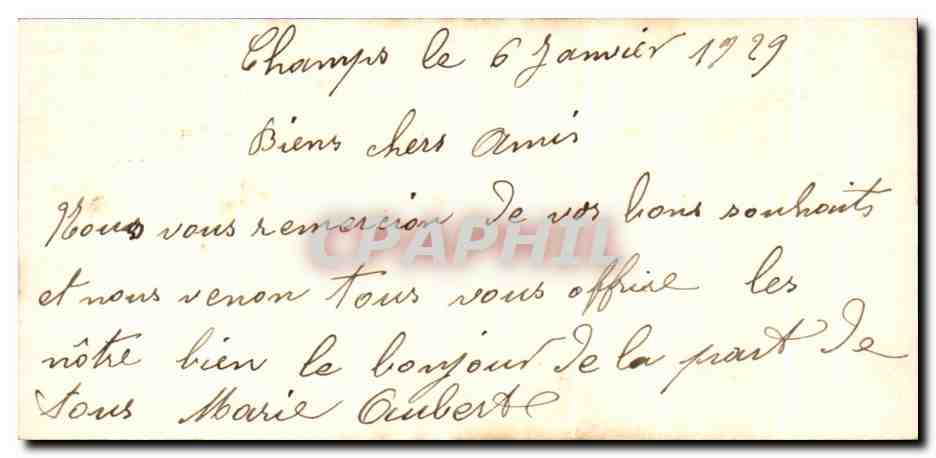 Champs le 6 Janvier 1929
Biens chers Amis
Nous vous remercion de vos bons souhaits
CPAPHIL
et nous venon tous vous offrire les
nôtre bien le bonjour de la part de
tous Marie Aubert